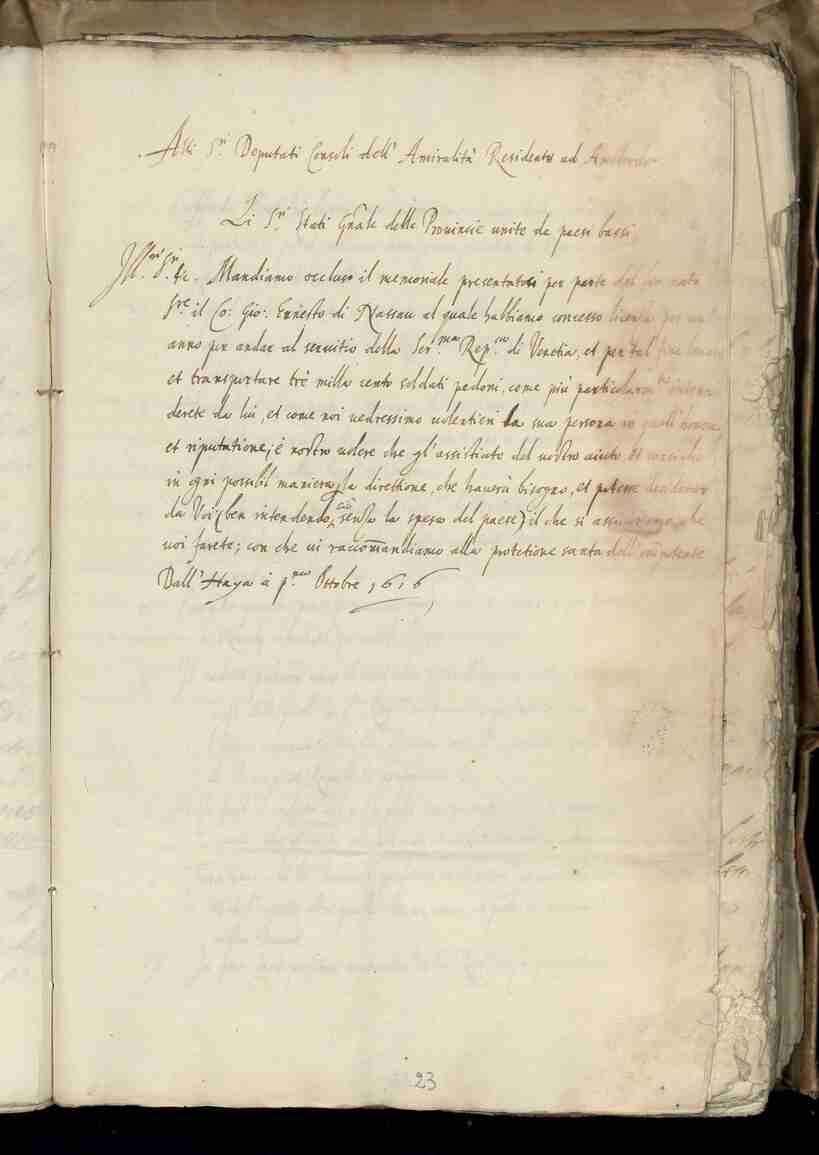 Alli S.ri Deputati Consoli dell' Amiralità Residente ad
Li S.ri Stati Gn̄ale delle Prouincie unite de paesi bassi
Ill.mi S.ri &c. Mandiamo occluso il memoriale presentatoci per parte del
S.re il Co: Gio: Ernesto di Nassau al quale habbiamo concesso licenza per un
anno per andar al seruitio della Ser.ma Rep.ca di Venetia, et per tal fine
et transportare trè milla cento soldati pedoni, come più particolarm.te inten
derete da lui, et come noi uedressimo uolentieri la sua persona in quell'honore,
et riputatione; è nostro uolere che gl'assistiate del uostro aiuto, et
in ogni possibil maniera, la direttione, che hauerà bisogno, et potesse desiderar
da Voi (ben intendendo ciò senza la spesa del paese) il che si che
uoi farete; con che ui raccom̄andiamo alla protetione santa dell'om̄ipotente
Dall'Haya à p.mo Ottobre 1616
23